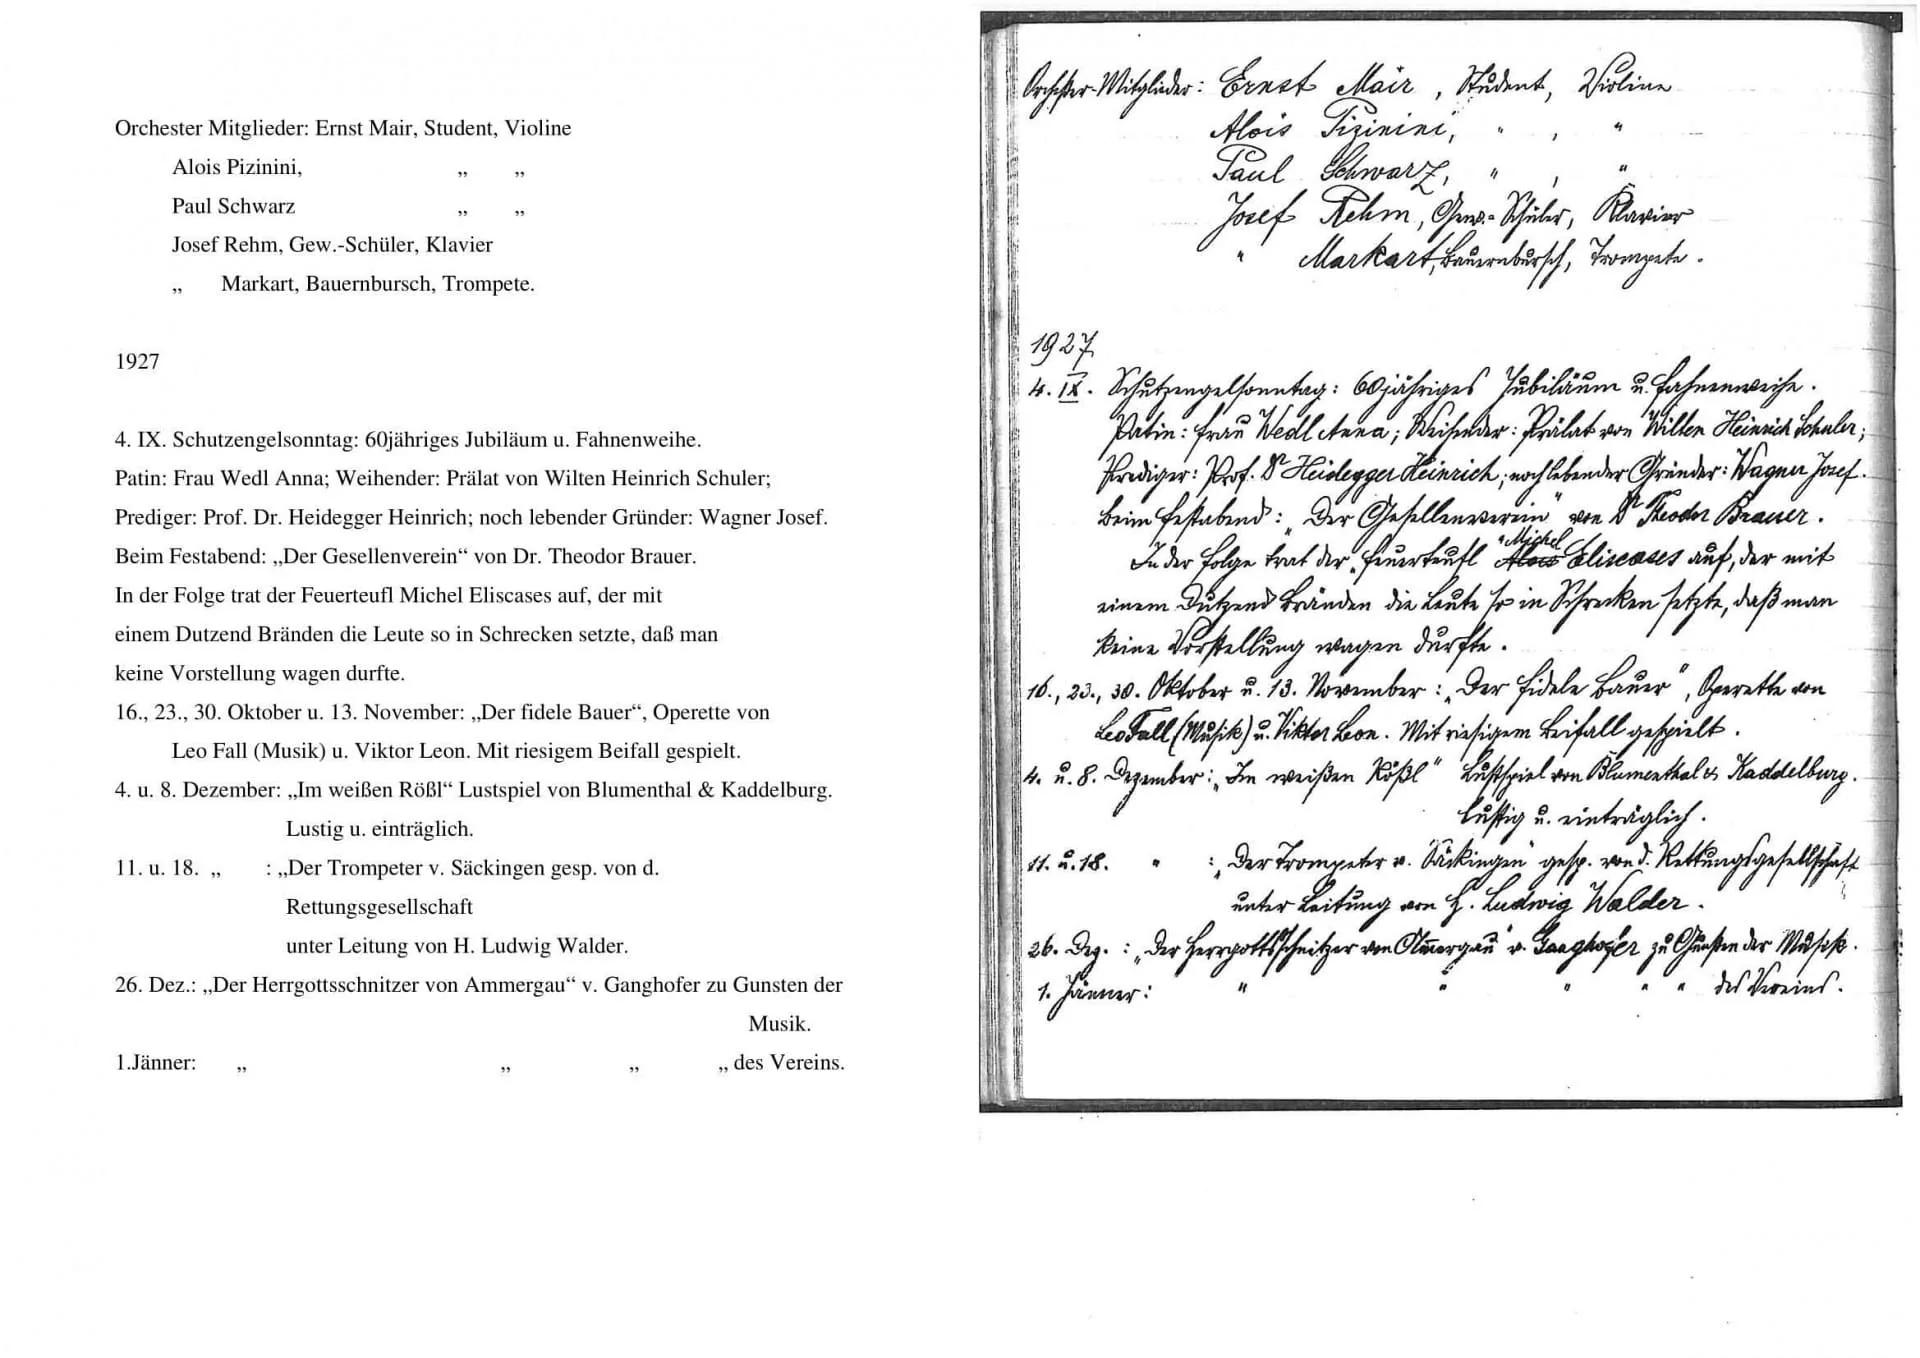 Orchester Mitglieder: Ernst Mair, Student, Violine
Alois Pizinini, „ „
Paul Schwarz „ „
Josef Rehm, Gew.-Schüler, Klavier
„ Markart, Bauernbursch, Trompete.
1927
4. IX. Schutzengelsonntag: 60jähriges Jubiläum u. Fahnenweihe.
Patin: Frau Wedl Anna; Weihender: Prälat von Wilten Heinrich Schuler;
Prediger: Prof. Dr. Heidegger Heinrich; noch lebender Gründer: Wagner Josef.
Beim Festabend: „Der Gesellenverein“ von Dr. Theodor Brauer.
In der Folge trat der Feuerteufl Michel Eliscases auf, der mit
einem Dutzend Bränden die Leute so in Schrecken setzte, daß man
keine Vorstellung wagen durfte.
16., 23., 30. Oktober u. 13. November: „Der fidele Bauer“, Operette von
Leo Fall (Musik) u. Viktor Leon. Mit riesigem Beifall gespielt.
4. u. 8. Dezember: „Im weißen Rößl“ Lustspiel von Blumenthal & Kaddelburg.
Lustig u. einträglich.
11. u. 18. „ : „Der Trompeter v. Säckingen gesp. von d.
Rettungsgesellschaft
unter Leitung von H. Ludwig Walder.
26. Dez.: „Der Herrgottsschnitzer von Ammergau“ v. Ganghofer zu Gunsten der
Musik.
1.Jänner: „ „ „ „ des Vereins.
Orchester-Mitglieder: Ernst Mair, Student, Violine
Alois Pizinini, " , "
Paul Schwarz, " , "
Josef Rehm, Gew.-Schüler, Klavier
" Markart, Bauernbursch, Trompete.
1927
4. IX. Schutzengelsonntag: 60jähriges Jubiläum u. Fahnenweihe.
Patin: Frau Wedl Anna; Weihender: Prälat von Wilten Heinrich Schuler;
Prediger: Prof. Dr Heidegger Heinrich; noch lebender Gründer: Wagner Josef.
Beim Festabend: „Der Gesellenverein" von Dr Theodor Brauer.
In der Folge trat der „Feuerteufl" Michel Eliscases auf, der mit
einem Dutzend Bränden die Leute so in Schrecken setzte, daß man
keine Vorstellung wagen durfte.
16., 23., 30. Oktober u. 13. November: „Der fidele Bauer", Operette von
Leo Fall (Musik) u. Viktor Leon. Mit riesigem Beifall gespielt.
4. u. 8. Dezember: „Im weißen Rößl" Lustspiel von Blumenthal & Kaddelburg.
Lustig u. einträglich.
11. u. 18. " : „Der Trompeter v. Säckingen" gesp. von d. Rettungsgesellschaft
unter Leitung von H. Ludwig Walder.
26. Dez.: „Der Herrgottsschnitzer von Ammergau" v. Ganghofer zu Gunsten der Musik.
1. Jänner: " " " " " des Vereins.